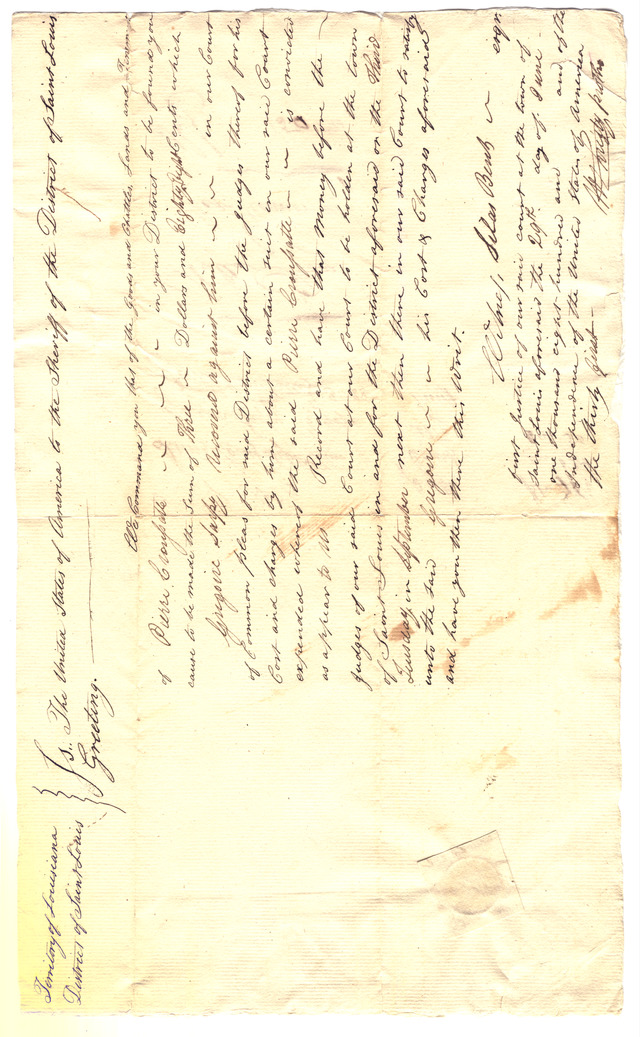 Territory of Louisiana
District of Saint Louis
Ss. The United States of America to the Sheriff of the District of Saint Louis
Greeting.
We Command you that of the Goods and Chattles, Lands and
of Pierre ~ ~ ~ in your District to be found you
cause to be made the Sum of Three ~ Dollars and Eighty Eight Cents which
Gregoire Sarpy Recovered against him ~ ~ ~ in our Court
of Common pleas for said District before the judges thereof for his
Cost and charges by him about a certain suit in our said Court
expended whereof the said Pierre ~ ~ is convicted
as appear to us ~ Record and have that Money before the ~
judges of our said Court at our Court to be holden at the town
of Saint Louis in and for the District aforesaid on the Third
Tuesday in September next then there in our said Court to satisfy
unto the said Gregoire ~ ~ his Cost & Charges aforesaid
and have you then there this Writ.
Witness, Silas Bent ~ esqr
first Justice of our said court at the town of
Saint Louis aforesaid the 29th. day of June
one thousand eight hundred and and of the
Independence of the United States of America
the thirty first